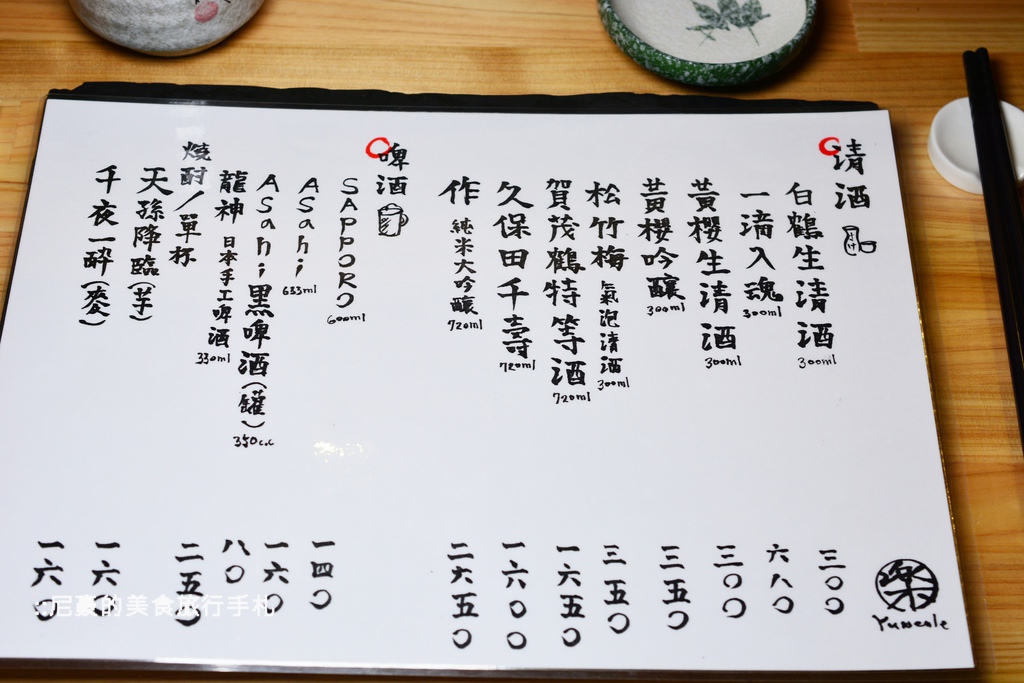 清酒
さけ
白鶴生清酒 300ml 三〇〇
一滴入魂 300ml 六八〇
黃櫻生清酒 300ml 三〇〇
黃櫻吟釀 300ml 三五〇
松竹梅 氣泡清酒 300ml 三五〇
賀茂鶴特等酒 720ml 一六五〇
久保田千壽 720ml 一六〇〇
作 純米大吟釀 720ml 二六五〇
啤酒
SAPPORO 600ml 一四〇
ASahi 633ml 一六〇
ASahi黑啤酒(罐) 350c.c 八〇
龍神 日本手工啤酒 330ml 二五〇
燒酎/單杯
天孫降臨(芋) 一六〇
千夜一醉(麥) 一六〇
樂
尼豪的美食旅行手札